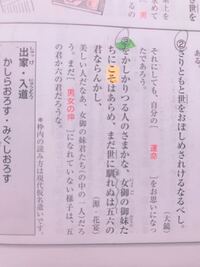 ②さりともと世をおぼしめされけるなるべし。
（大鏡）
それにしても、自分の［ 運命 ］をお思いになっ
たであろう。
をかしかりつる人のさまかな、女御の御妹た
ちにこそはあらめ、まだ世に馴れぬは五六の
君ならんかし。
（源・花宴）
美しい人だなあ、女御の妹君たち（の中の一人）だろ
う。まだ［ 男女の仲 ］になれていない様子は、五
の君か六の君だろう。
＊枠内の読み方は現代仮名遣いです。
出家・入道
しゅっけ
かしらおろす・みぐしおろす